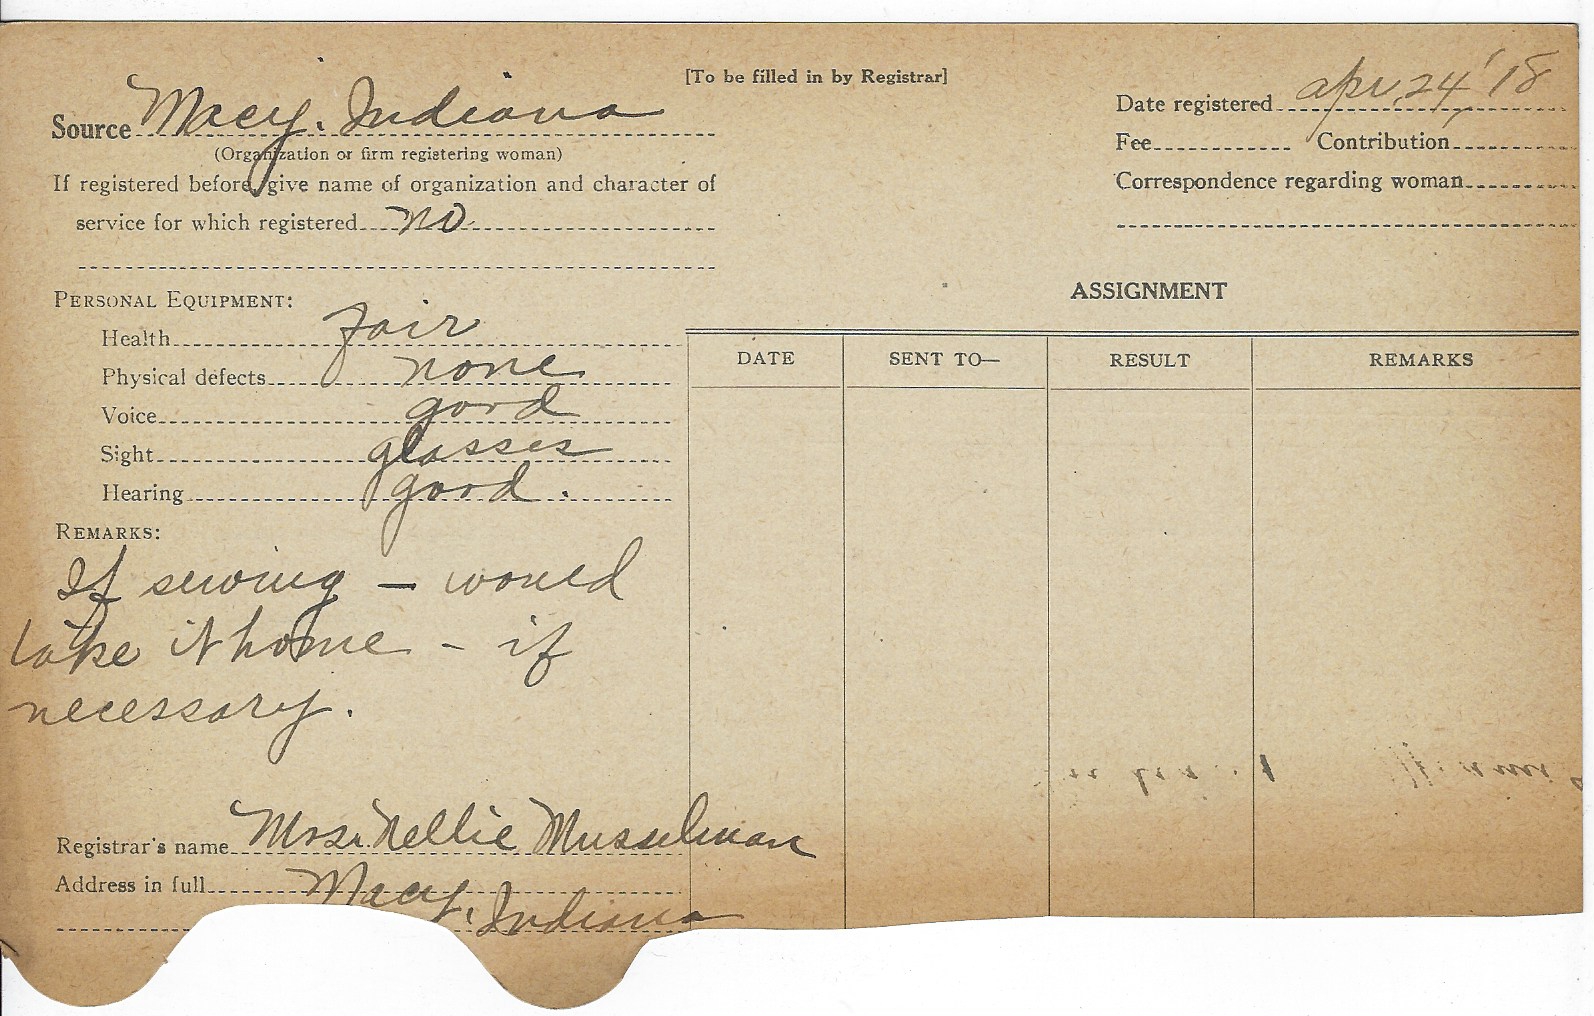 [To be filled in by Registrar]
Source Macy, Indiana
(Organization or firm registering woman)
If registered before, give name of organization and character of
service for which registered no
Date registered Apr. 24, '18
Fee Contribution
Correspondence regarding woman
PERSONAL EQUIPMENT:
Health Fair
Physical defects none
Voice good
Sight glasses
Hearing good.
REMARKS:
If sewing – would
take it home – if
necessary.
Registrar's name Mrs. Nellie Musselman
Address in full Macy, Indiana
ASSIGNMENT
DATE SENT TO— RESULT REMARKS